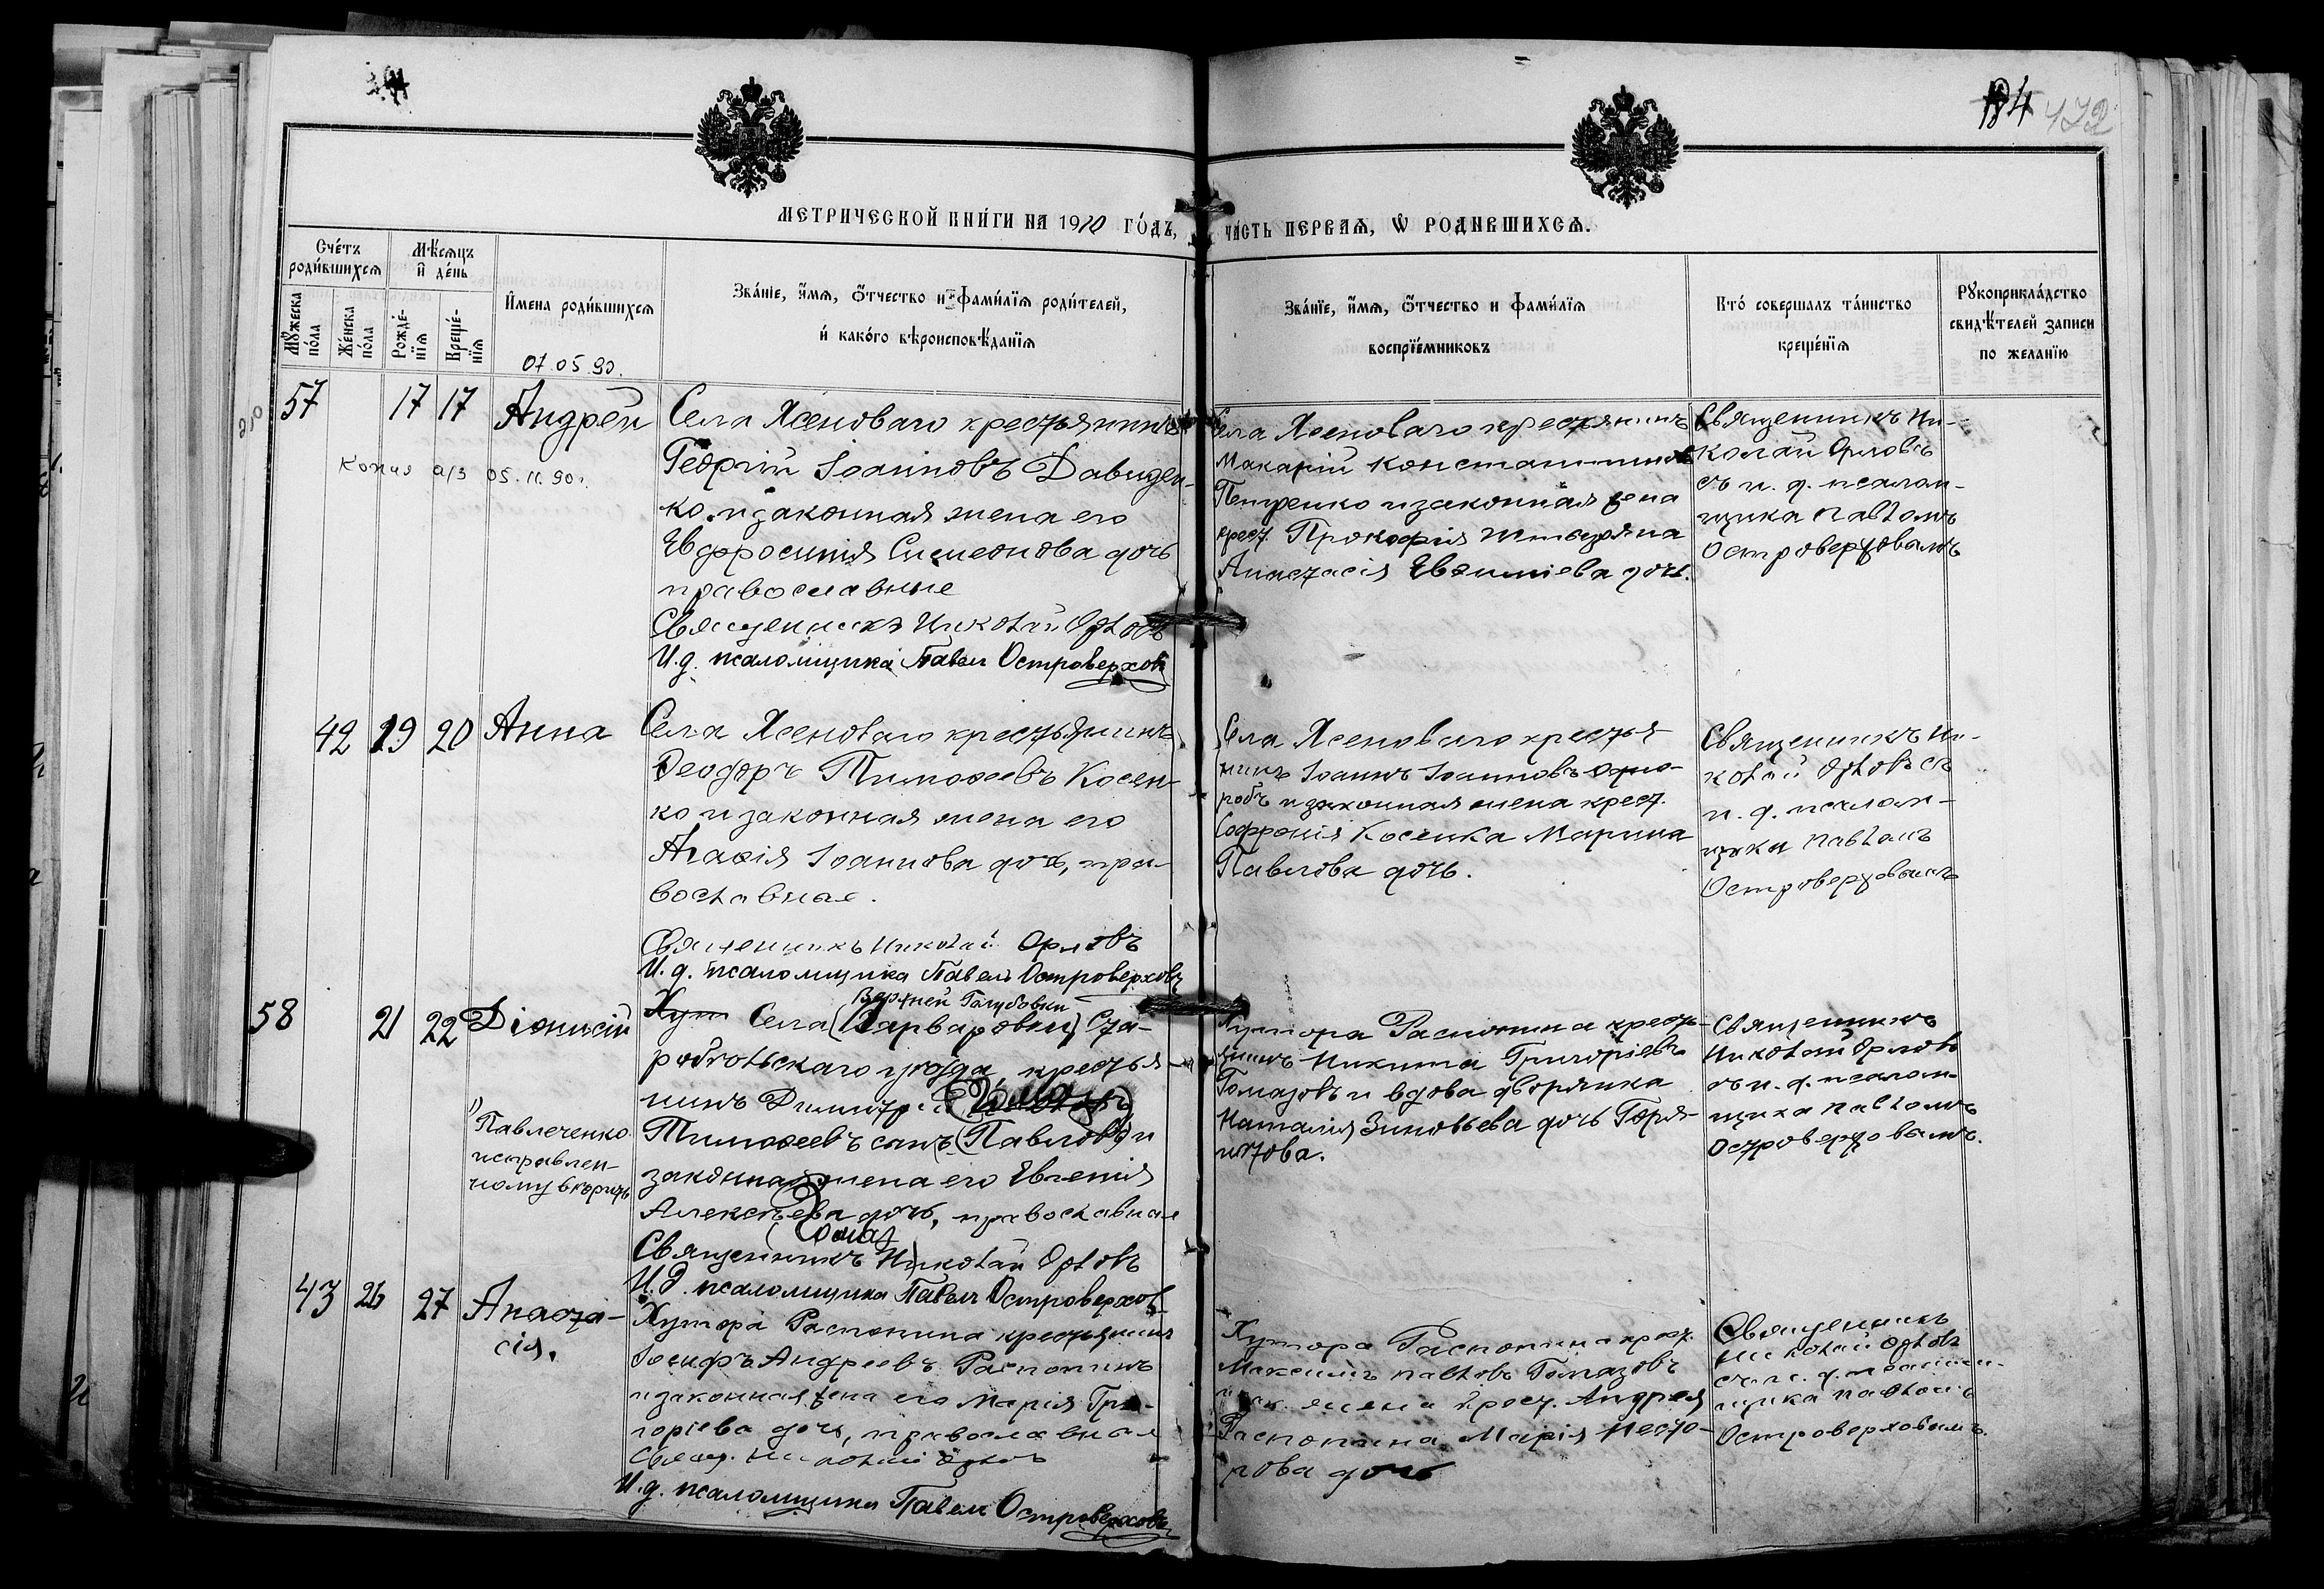 184 472
МЕТРИЧЕСКОЙ КНИ́ГИ НА 1910 ГО́ДЪ,
ЧА́СТЬ ПЕРВАѦ, Ѡ РОДИВШИХСѦ.
Сче́тъ роди́вшихсѧ
Мѣ́сѧцъ и҆ де́нь
Мꙋ́жеска по́ла
Же́нска по́ла
Рожде́нїѧ
Креще́нїѧ
И҆мена роди́вшихсѧ
07.05.90.
Зва́нїе, и҆́мѧ, ѻ҆́тчество и фами́лїѧ роди́телей,
и҆ како́го вѣроисповѣ́данїѧ
Зва́нїе, и҆́мѧ, ѻ҆́тчество и фами́лїѧ
воспрїе́мниковъ
Кто́ совершалъ та́инство
креще́нїѧ
Рꙋкоприкла́дство
свидѣ́телей записи
по желанїю
57 17 17 Андрей
Копия а/з 05.11.90г.
Села Ясеноваго крестьянинъ
Георгій Іоанновъ Давиден-
ко и законная жена его
Евфросинія Симеонова дочь
православные
Священникъ Николай Орловъ
И.д. псаломщика Павелъ Островерховъ
Села Ясеноваго крестьянинъ
Макарій Константиновъ
Петренко и законная жена
крест. Прокофія
Анастасія Евфиміева дочь.
Священникъ Ни-
колай Орловъ
съ и. д. псалом-
щика Павломъ
Островерховымъ
42 19 20 Анна
Села Ясеноваго крестьянинъ
Ѳеодоръ Тимоѳеевъ Косен-
ко и законная жена его
Агаѳія Іоаннова дочь, пра-
вославные.
Священникъ Николай Орловъ
И.д. псаломщика Павелъ Островерховъ
Села Ясеноваго кресть-
нинъ Іоаннъ Іоанновъ Одно-
робъ и законная жена крест.
Софронія Косенка Марина
Павлова дочь.
Священникъ Ни-
колай Орловъ съ
и. д. псалом-
щика Павломъ
Островерховымъ
58 21 22 Діонисій
1) Павлеченко
исправлен-
ному вѣрить
Верхней Голубовки
Хут Села (Варваровки) Ста-
робѣльскаго уѣзда, крестья-
нинъ Димитрій
Тимоѳеевъ сынъ (Павловъ) и
законная жена его Евгенія
Алексѣева дочь, православные
Священникъ Николай Орловъ
И.д. псаломщика Павелъ Островерховъ
Хутора Распопина кресть-
янинъ Никита Григоріевъ
Гомазовъ и вдова дворянка
Наталія Зиновьева дочь Горя-
инова.
Священникъ
Николай Орловъ
съ и. д. псалом-
щика Павломъ
Островерховымъ.
43 26 27 Анаста-
сія.
Хутора Распопина крестьянинъ
Іосифъ Андреевъ Распопинъ
и законная жена его Марія Гри-
горіева дочь, православные
Свящ. Николай Орловъ
И.д. псаломщика Павелъ Островерховъ
Хутора Распопина крест.
Максимъ Павловъ Гомазовъ
и зак. жена крест. Андрея
Распопина Марія Несто-
рова дочь
Священникъ
Николай Орловъ
съ и. д. псалом-
щика Павломъ
Островерховымъ.